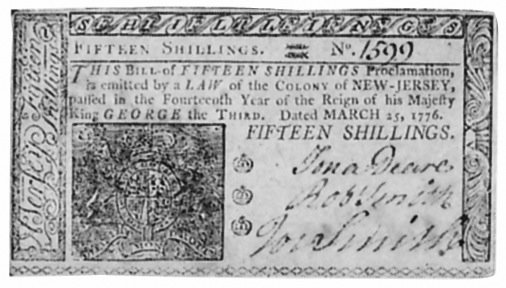 FIFTEEN SHILLINGS. No. 1599
THIS Bill of FIFTEEN SHILLINGS Proclamation,
is emitted by a LAW of the COLONY of NEW-JERSEY,
passed in the Fourteenth Year of the Reign of his Majesty
King GEORGE the THIRD. Dated MARCH 25, 1776.
FIFTEEN SHILLINGS.
Jona Deare
Rob Smith
Jos Smith
Jersey Fifteen
Shillings